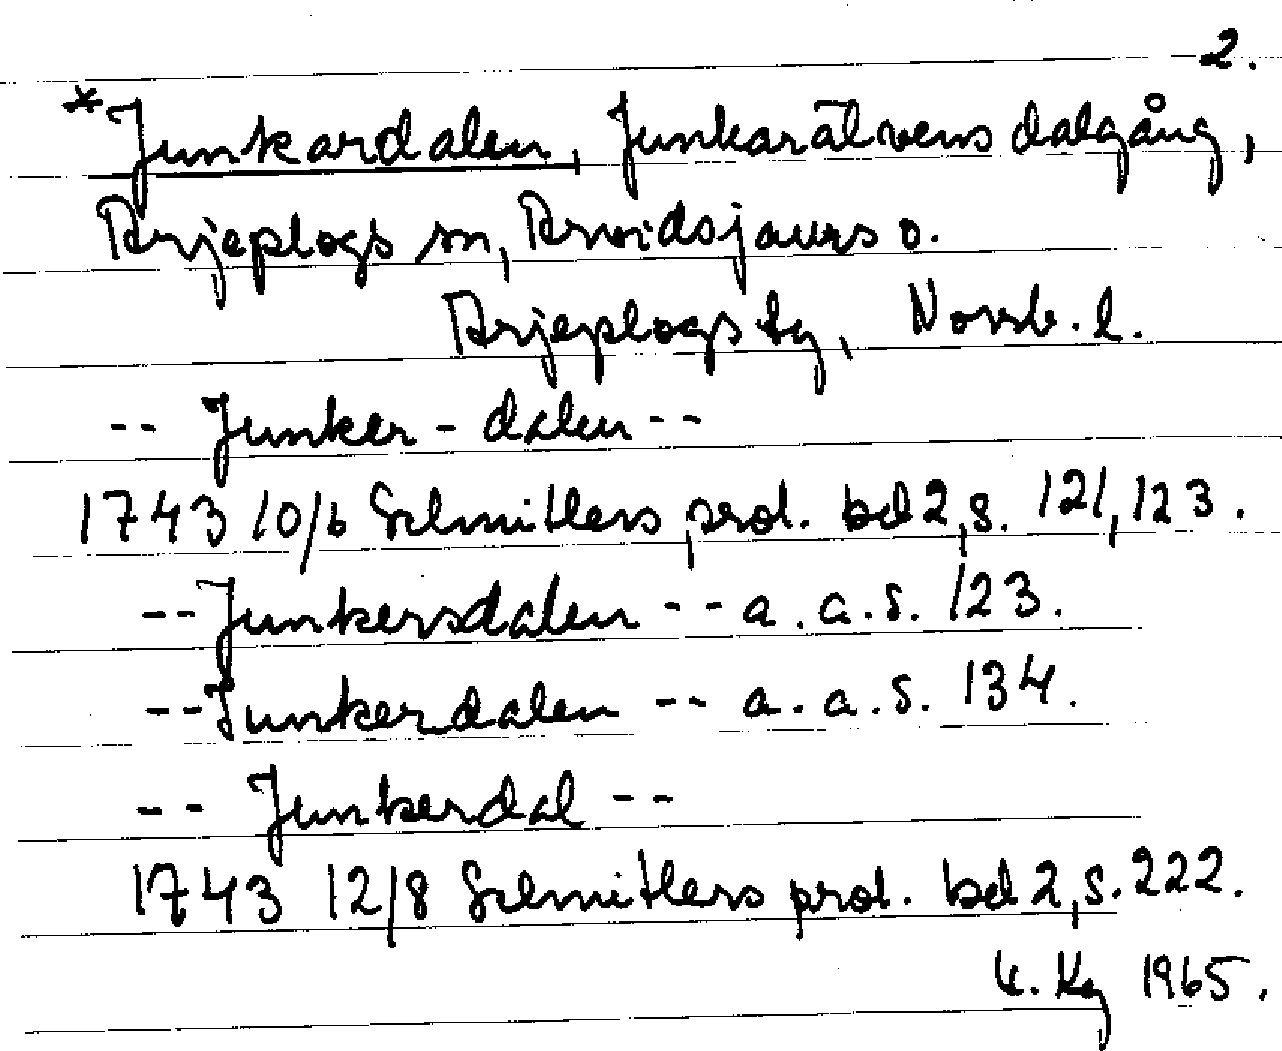 2.
*Junkardalen, Junkarälvens dalgång,
Arjeplogs sn, Arvidsjaurs o.
Arjeplogs tg, Norrb. l.
-- Junker-dalen --
1743 10/6 Schnitlers prot. bd 2, s. 121, 123.
-- Junkersdalen -- a. a. s. 123.
-- Junkerdalen -- a. a. s. 134.
-- Junkerdal --
1743 12/8 Schnitlers prot. bd 2, s. 222.
1965.